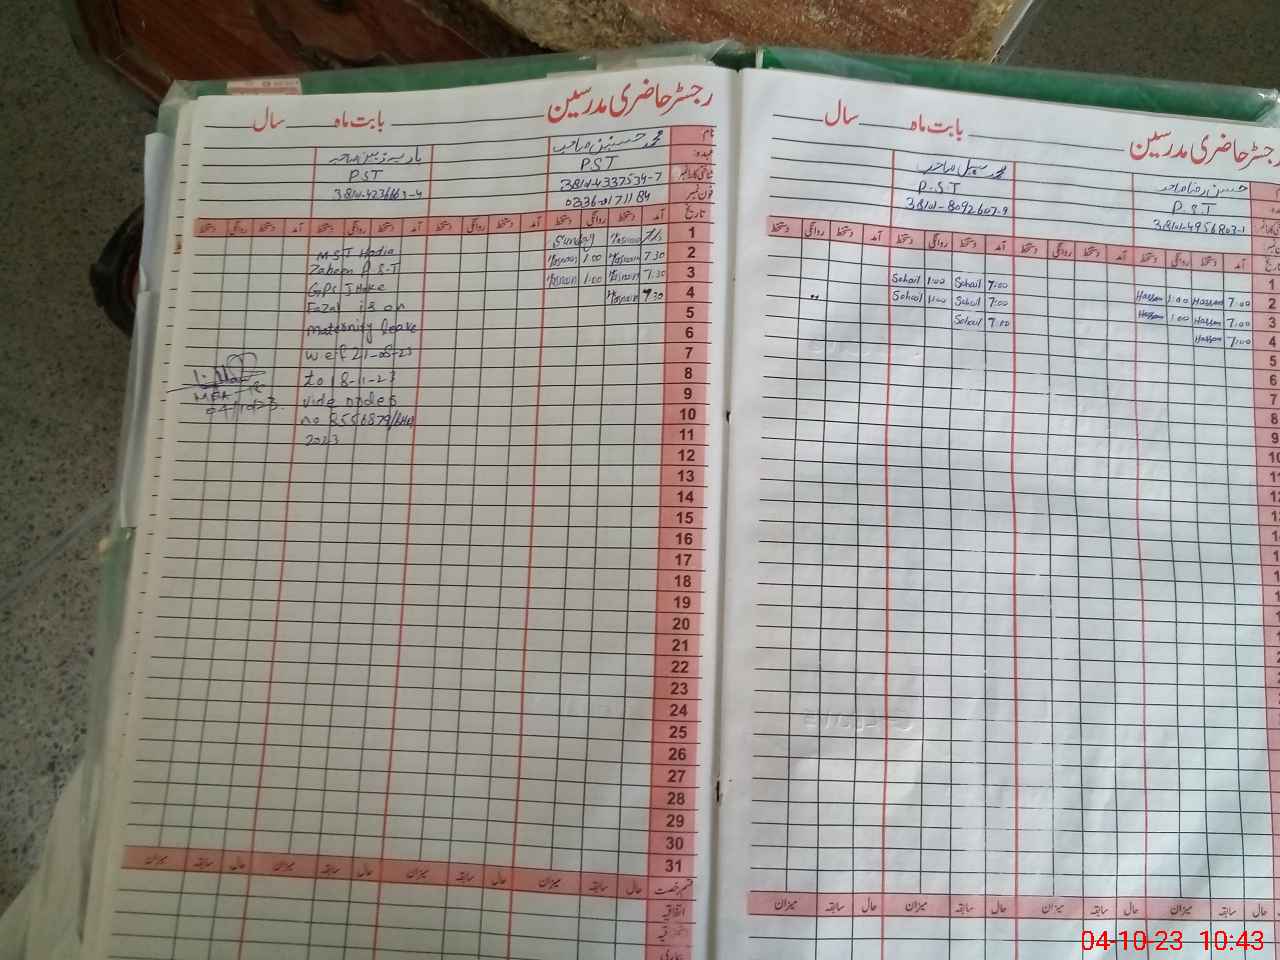 رجسٹر حاضری مدرسین بابت ماہ سال
نام محمد حسنین صاحب
عہدہ PST PST
شناختی کارڈ نمبر 38101-4337534-7
فون نمبر 0336-0171184
تاریخ آمد دستخط روانگی دستخط آمد دستخط روانگی دستخط آمد دستخط روانگی دستخط آمد دستخط روانگی دستخط
1 Sunday
2 7:30 Hasnain 1:00 Hasnain
3 7:30 Hasnain 1:00 Hasnain
4 7:30 Hasnain
5
6
7
8
9
10
11
12
13
14
15
16
17
18
19
20
21
22
23
24
25
26
27
28
29
30
31
MST Hadia
Zaheen P.S.T
GPS
Fazal is on
maternity leave
wef 21-08-23
to 18-11-23
vide order
no
2023
04/10/23
حال سابقہ میزان حال سابقہ میزان حال سابقہ میزان حال سابقہ میزان
اتفاقیہ
رجسٹر حاضری مدرسین بابت ماہ سال
حسن رضا صاحب محمد سہیل صاحب
P.S.T P.S.T
38101-4956803-1 38101-8092607-9
آمد دستخط روانگی دستخط آمد دستخط روانگی دستخط آمد دستخط روانگی دستخط آمد دستخط روانگی
1
2 7:00 Hassan 1:00 Hassan 7:00 Sohail 1:00 Sohail
3 7:00 Hassan 1:00 Hassan 7:00 Sohail 1:00 Sohail
4 7:00 Hassan 7:00 Sohail
5
6
7
8
9
10
11
12
حال سابقہ میزان حال سابقہ میزان حال سابقہ میزان حال سابقہ میزان
04-10-23 10:43